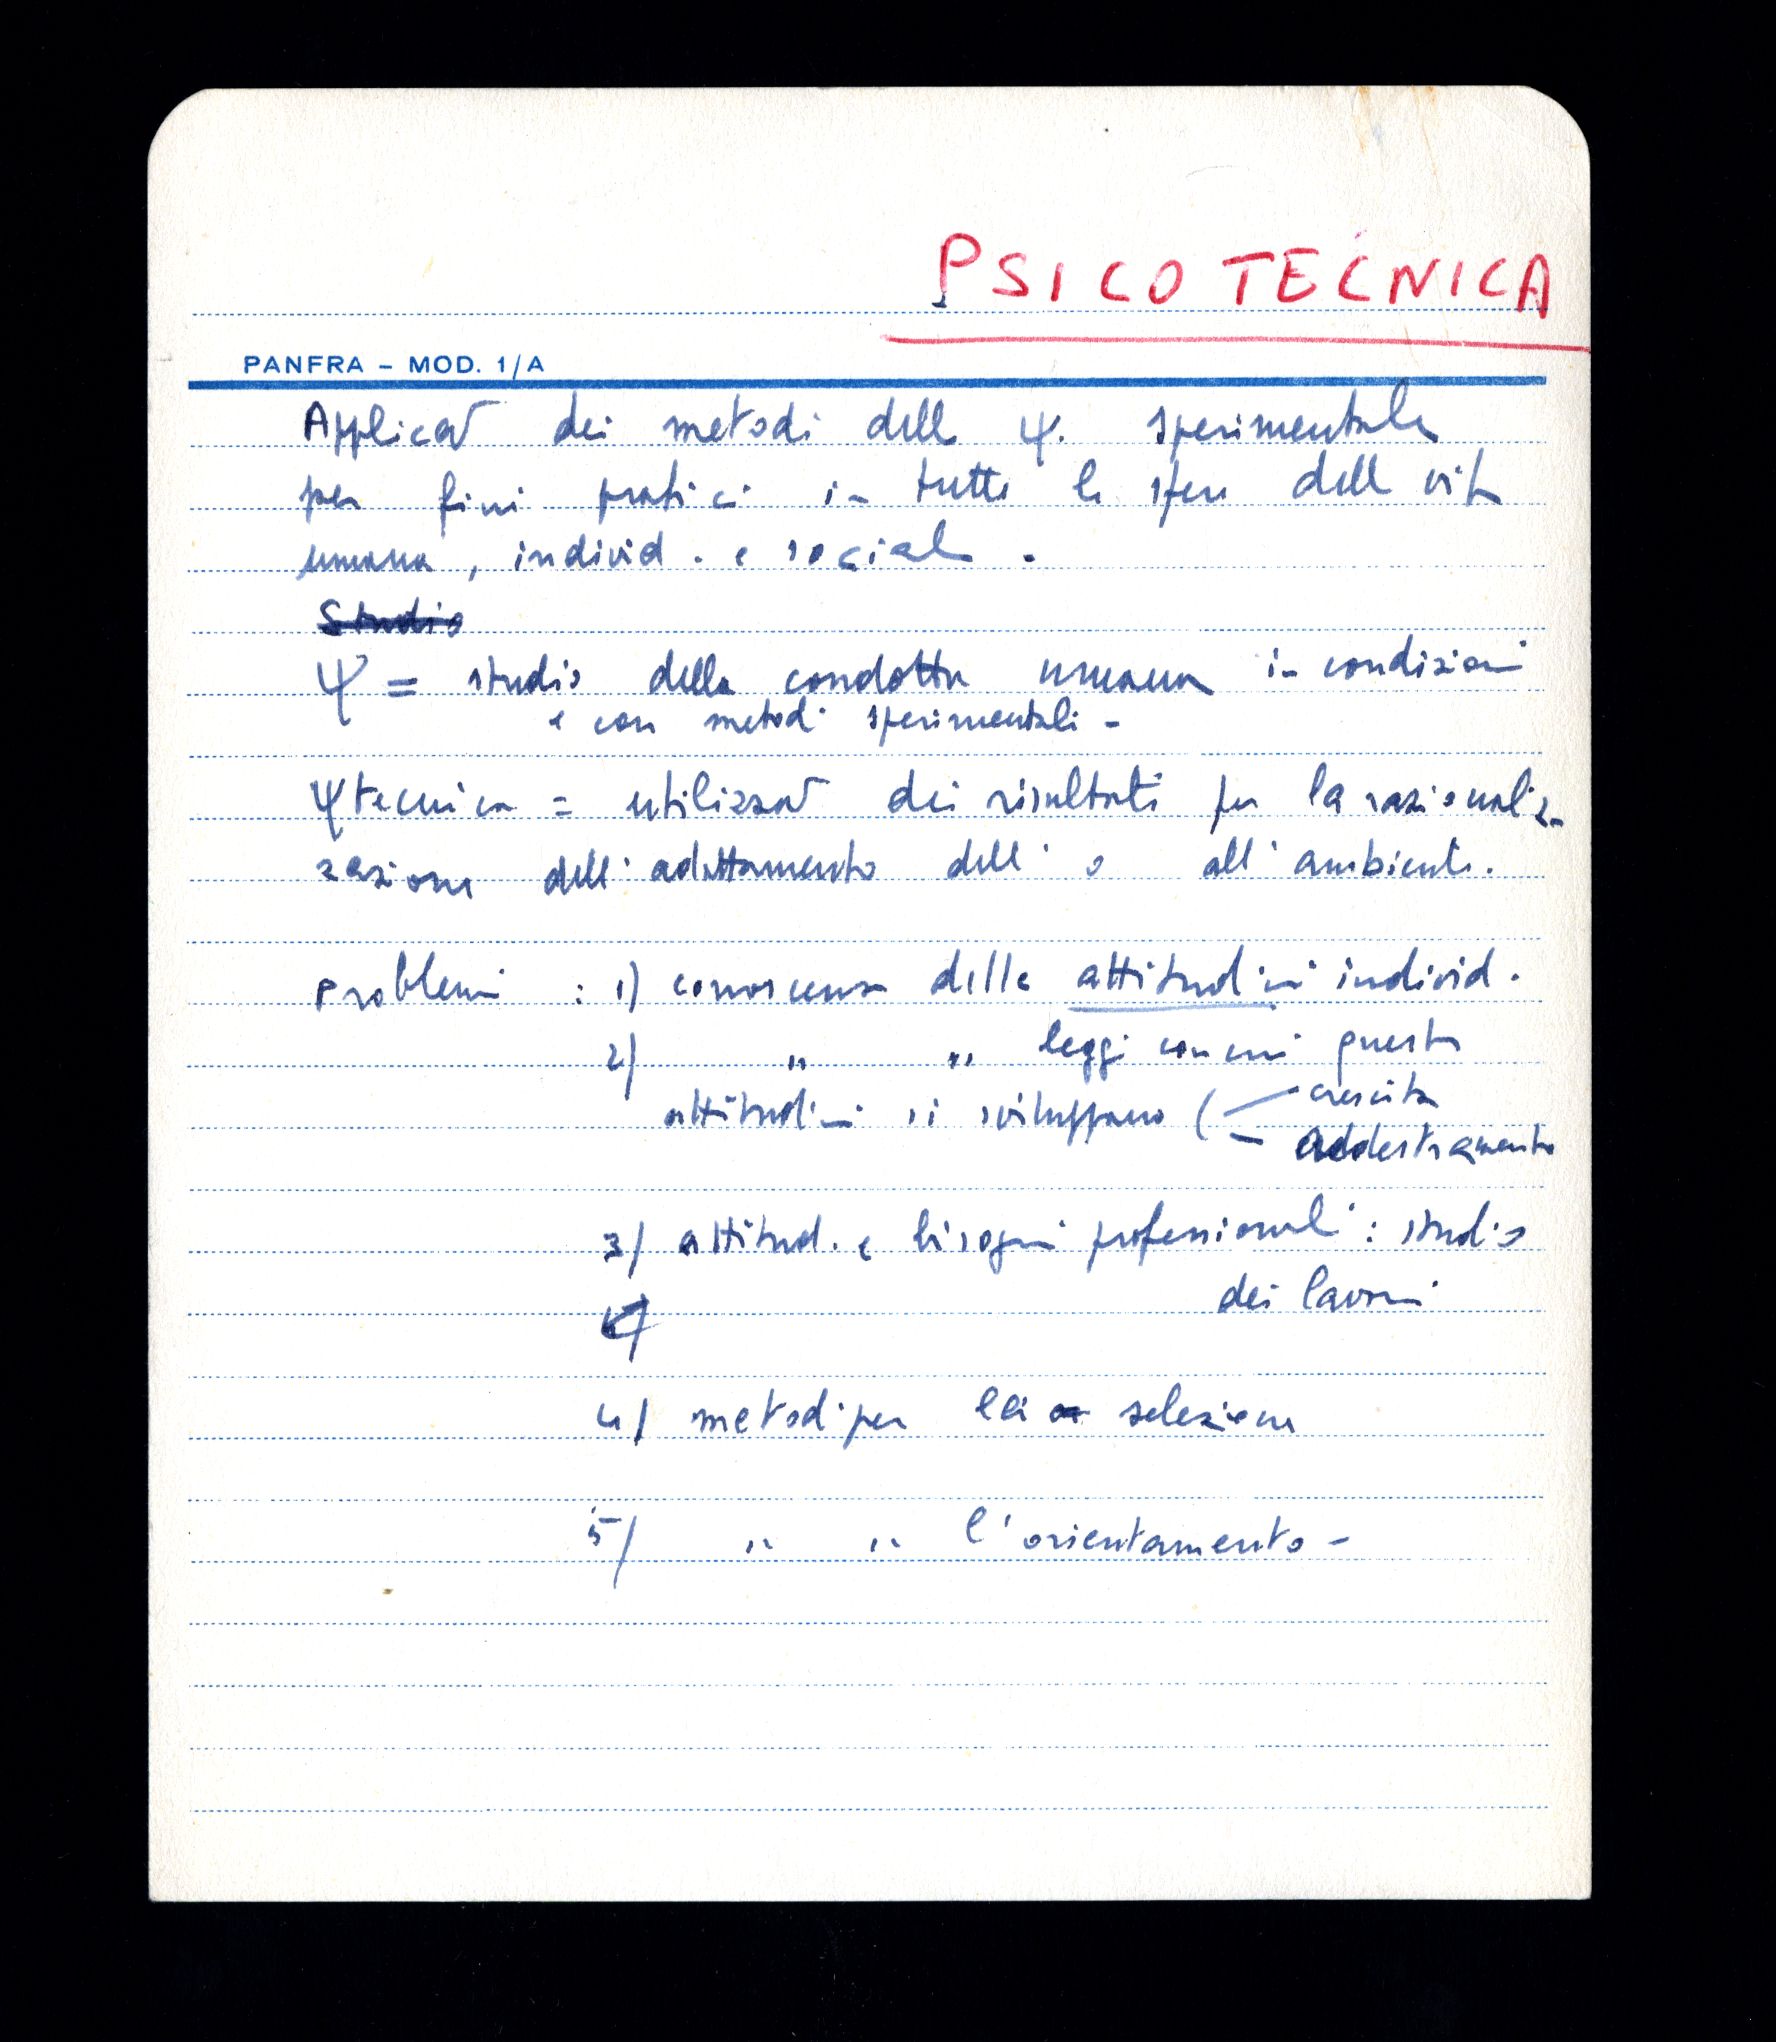 PSICOTECNICA
PANFRA – MOD. 1/A
Applicaz dei metodi della ψ. sperimentale
per fini pratici in tutte le sfere della vita
umana, individ. e sociale.
Studio
ψ = studio della condotta umana in condizioni
e con metodi sperimentali –
ψtecnica = utilizzaz dei risultati per la razionaliz-
zazione dell'adattamento dell' o all'ambiente.
Problemi : 1) conoscenza delle attitudini individ.
2) " " leggi con cui queste
attitudini si sviluppano ( – crescita
– addestramento
3) attitud. e bisogni professionali : studio
dei lavori
4)
4) metodi per la selezione
5) " " l'orientamento –